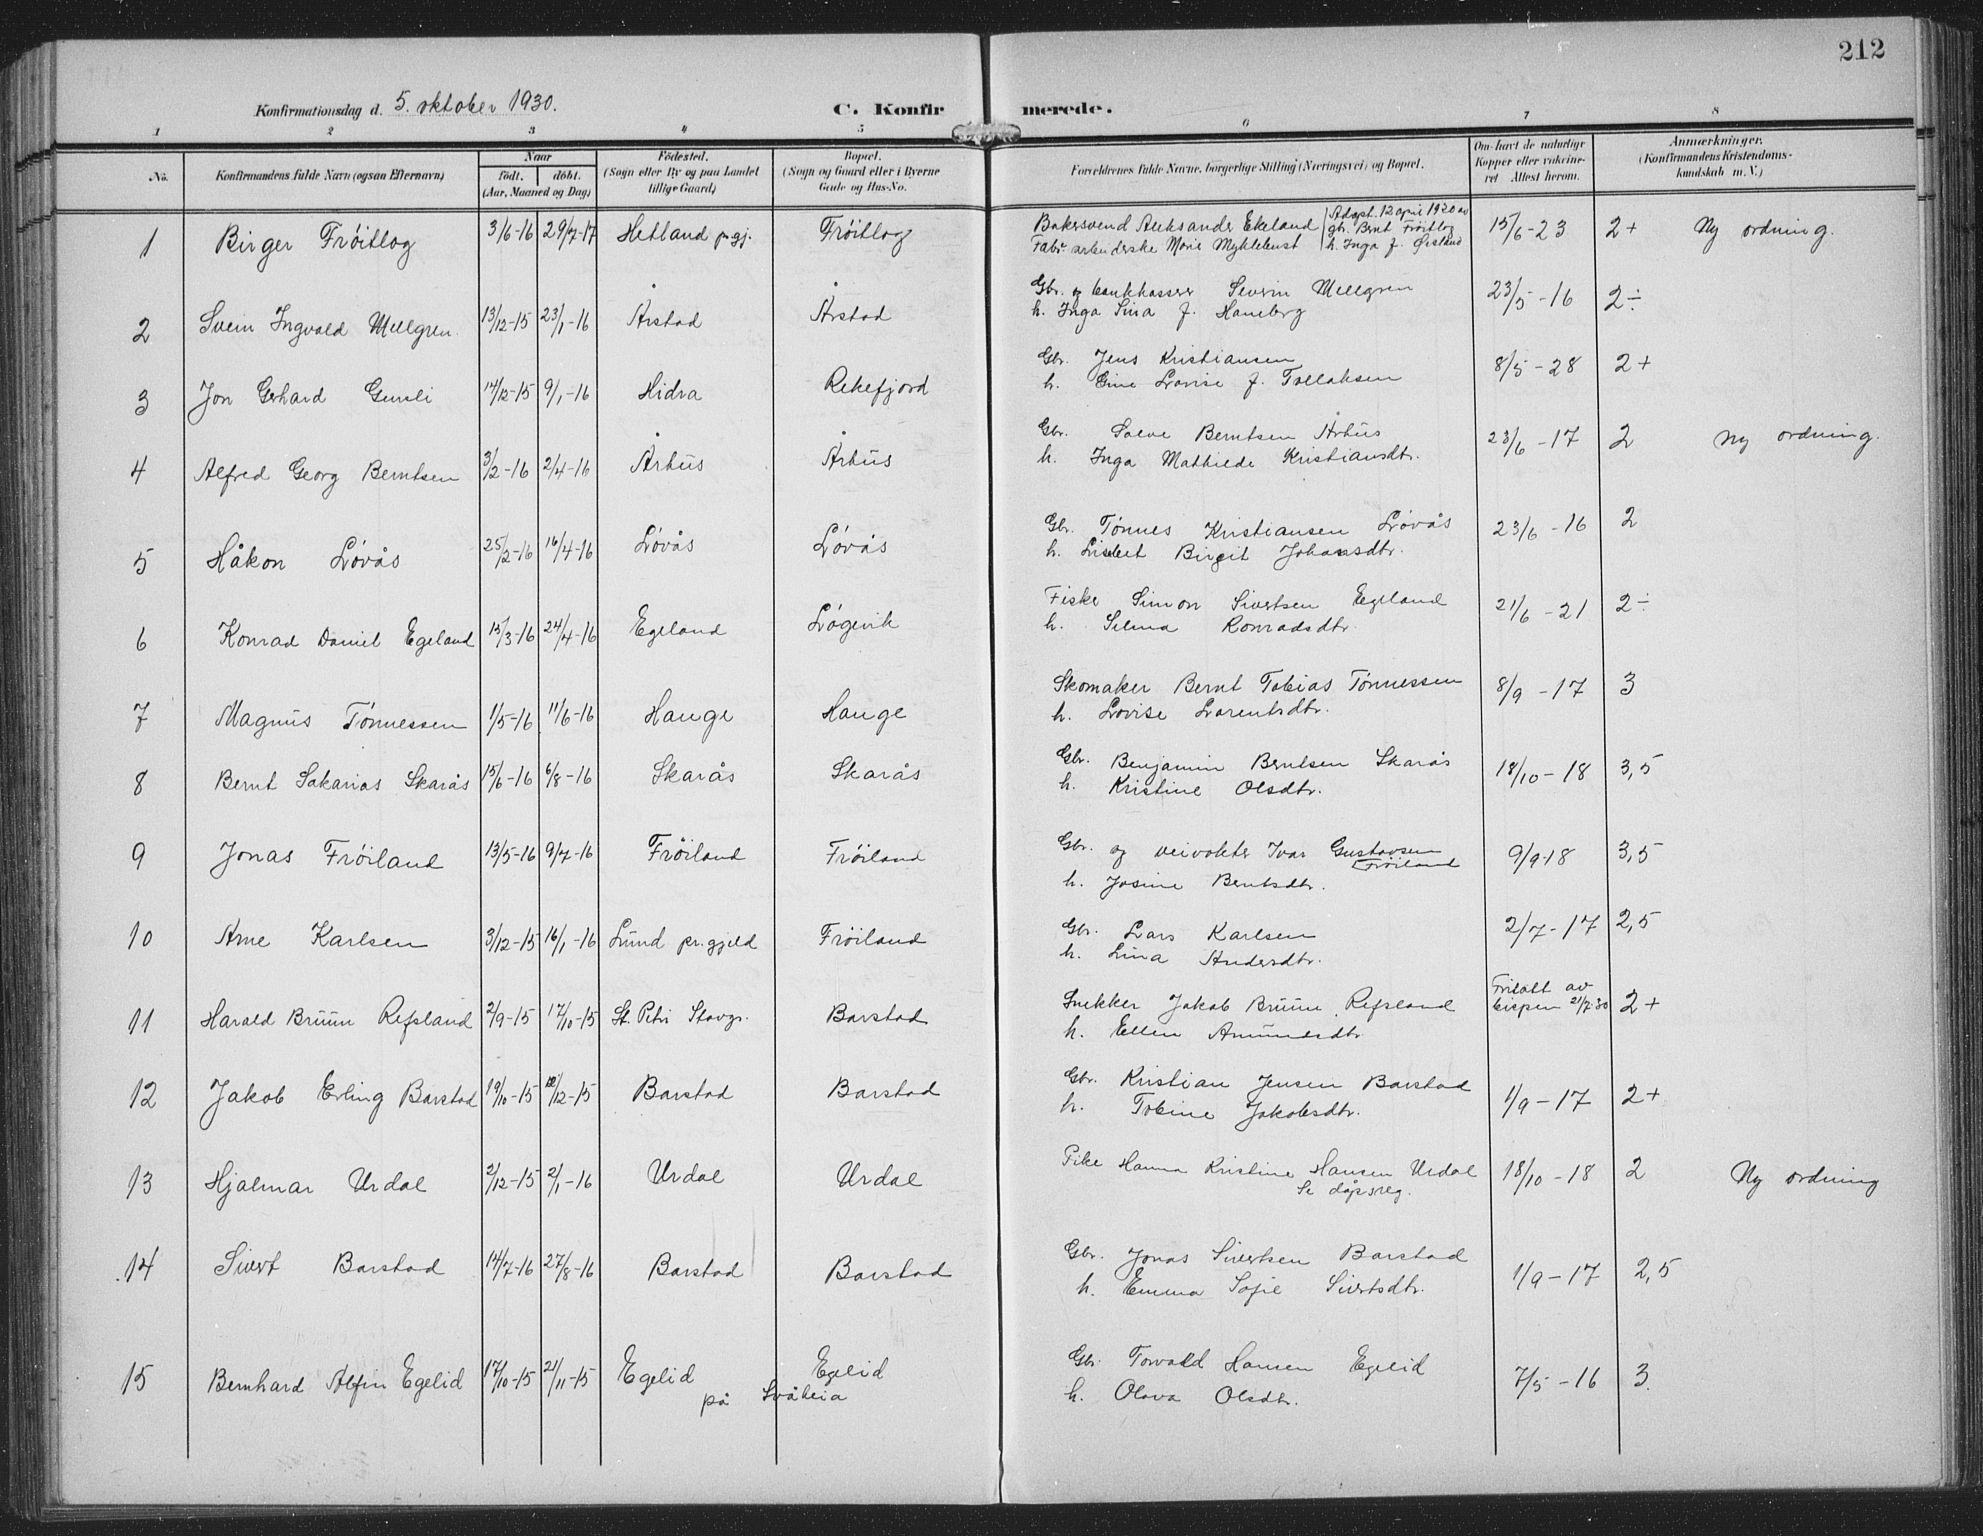 212
Konfirmationsdag d. 5. oktober 1930.
C. Konfirmerede.
1 2 3 4 5 6 7 8
No.
Konfirmandens fulde Navn (ogsaa Efternavn)
Naar
født. døbt.
(Aar, Maaned og Dag)
Fødested.
(Sogn eller By og paa Landet
tillige Gaard)
Bopæl.
(Sogn og Gaard eller i Byerne
Gade og Hus-No.
Forældrenes fulde Navne, borgerlige Stilling (Næringsvei) og Bopæl.
Om havt de naturlige
Kopper eller vakcine-
ret Attest herom.
Anmærkninger.
(Konfirmandens Kristendoms-
kundskab m. V.)
1 Birger Frøitlog 3/6-16 29/7-17 Hetland pr.gj. Frøitlog
Bakersvend Aleksander Ekeland Adopt. 12 april 1920 av
gb. Brnt Frøitlog
Fabr. arbeiderske Marie Myklebust h. Inga f. Ørsland
15/6-23 2+ Ny ordning.
2 Svein Ingvald Mellgren 13/12-15 23/1-16 Årstad Årstad
Gbr. og bankkasserer Severin Mellgren
h. Inga Sina f. Haneberg
23/5-16 2÷
3 Jon Gerhard Gursli 14/12-15 9/1-16 Hidra Rekefjord
Gbr. Jens Kristiansen
h. Eine Lovise f. Tollaksen
8/5-28 2+
4 Alfred Georg Berntsen 3/2-16 2/4-16 Århus Århus
Gbr. Salve Berntsen Århus
h. Inga Mathilde Kristiansdtr.
23/6-17 2 Ny ordning.
5 Håkon Løvås 25/2-16 16/4-16 Løvås Løvås
Gbr. Tønnes Kristiansen Løvås
h. Lisbet Birgit Johansdtr.
23/6-16 2
6 Konrad Daniel Egeland 15/3-16 24/4-16 Egeland Løgevik
Fisker Simon Sivertsen Egeland
h. Selma Konradsdtr.
21/6-21 2÷
7 Magnus Tønnessen 1/5-16 11/6-16 Hauge Hauge
Skomaker Bernt Tobias Tønnessen
h. Lovise Larentsdtr.
8/9-17 3
8 Bernt Sakarias Skarås 15/6-16 6/8-16 Skarås Skarås
Gbr. Benjamin Berntsen Skarås
h. Kristine Olsdtr.
18/10-18 3,5
9 Jonas Frøiland 13/5-16 9/7-16 Frøiland Frøiland
Gbr. og veivokter Ivar Gustavsen
Frøiland
h. Josine Berntsdtr.
9/9-18 3,5
10 Arne Karlsen 3/12-15 16/1-16 Lund pr.gjeld Frøiland
Gbr. Lars Karlsen
h. Lina Andersdtr.
2/7-17 2,5
11 Harald Bruun Refsland 2/9-15 17/10-15 St. Petri Stavgr. Barstad
Snekker Jakob Bruun Refsland
h. Ellen Amundsdtr.
Fritatt av
bispen 21/7-30 2+
12 Jakob Erling Barstad 19/10-15 12/12-15 Barstad Barstad
Gbr. Kristian Jensen Barstad
h. Tobine Jakobsdtr.
1/9-17 2+
13 Hjalmar Urdal 2/12-15 2/1-16 Urdal Urdal
Pike Hanna Kristine Hansen Urdal
Se dåpsreg.
18/10-18 2 Ny ordning
14 Sivert Barstad 14/7-16 27/8-16 Barstad Barstad
Gbr. Jonas Sivertsen Barstad
h. Emma Sofie Sivertsdtr.
1/9-17 2,5
15 Bernhard Alfin Egelid 17/10-15 21/11-15 Egelid Egelid
på Svåheia
Gbr. Torvald Hansen Egelid
h. Olava Olsdtr.
7/5-16 3.